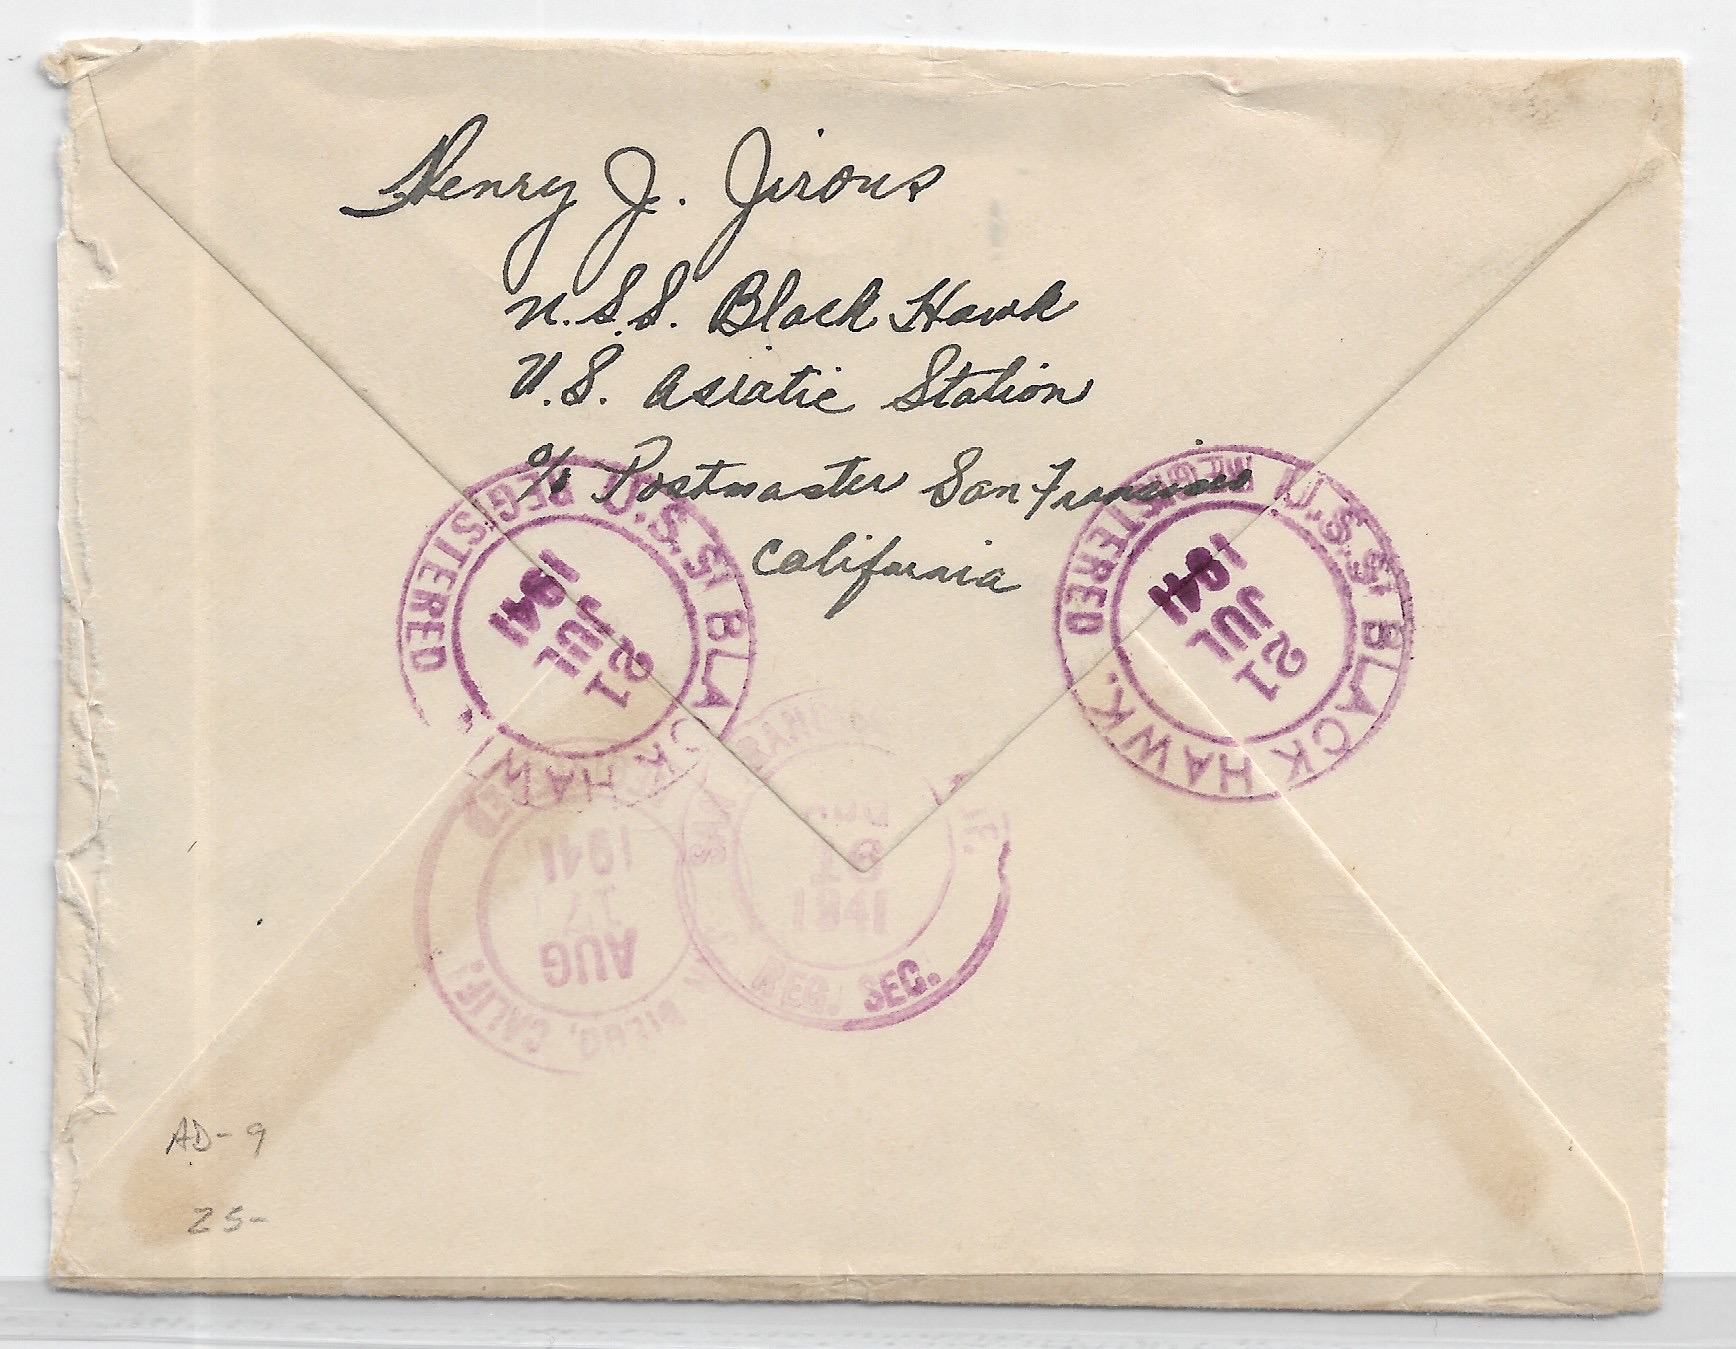 Henry J. Jirous
U.S.S. Black Hawk
U.S. Asiatic Station
c/o Postmaster San Francisco
California
U.S.S. BLACK HAWK
REGISTERED
21
JUL
1941
U.S.S. BLACK HAWK.
REGISTERED
21
JUL
1941
DIEGO, CALIF.
AUG
17
1941
1941
REG. SEC.
AD-9
25-